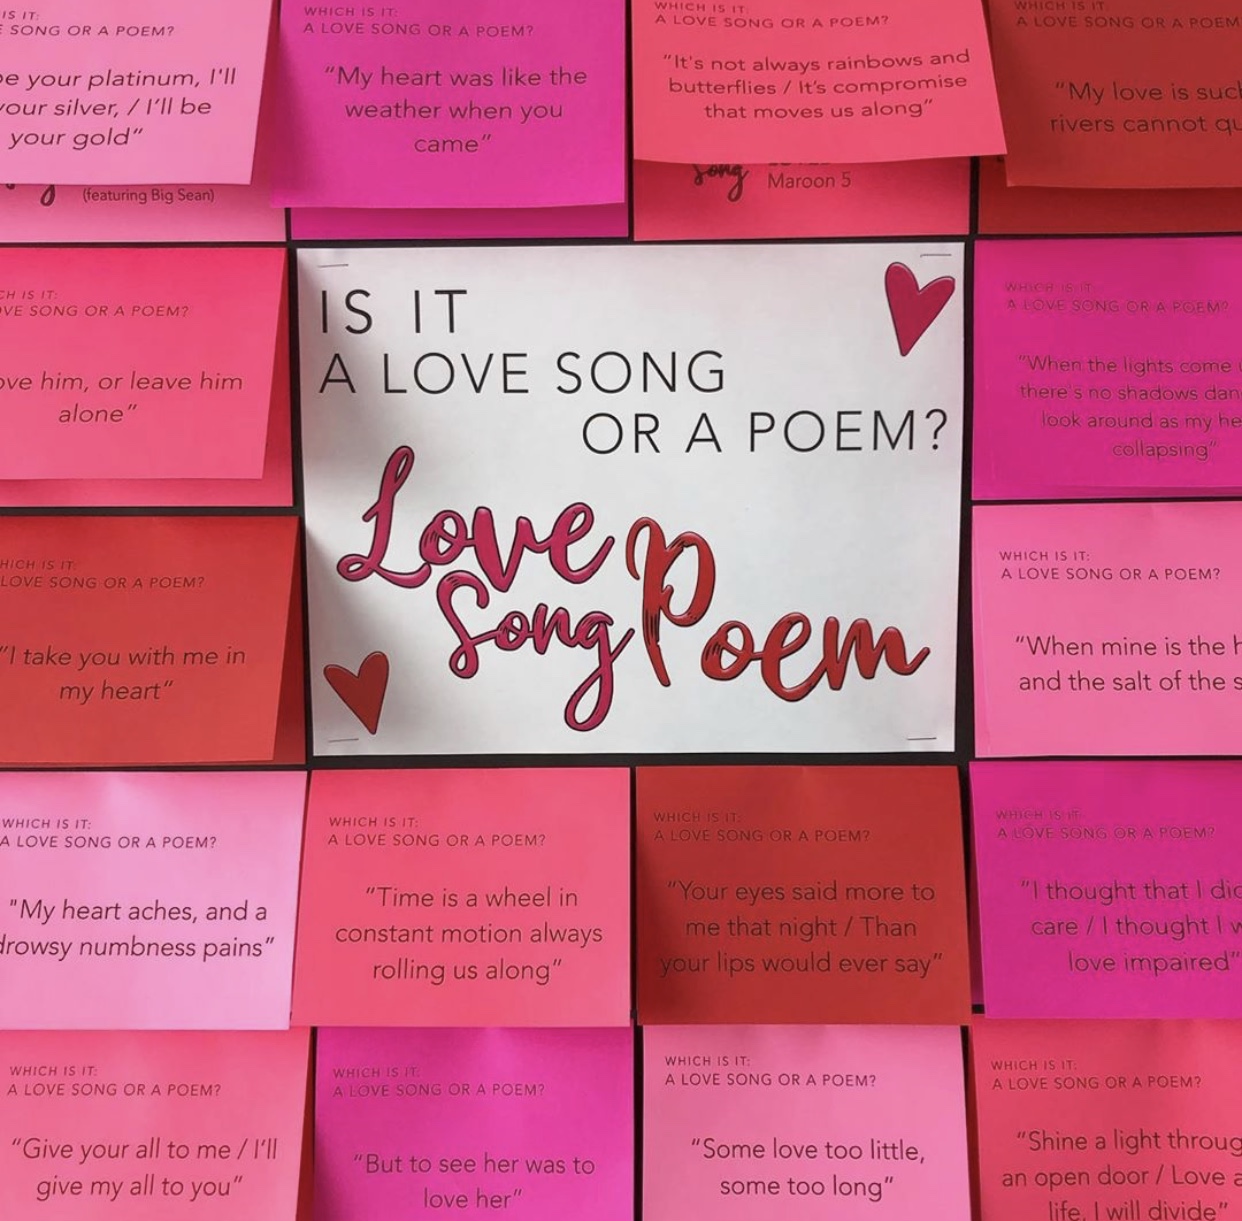 IS IT:
SONG OR A POEM?
be your platinum, I'll
your silver, / I'll be
your gold"
(featuring Big Sean)
WHICH IS IT:
A LOVE SONG OR A POEM?
"My heart was like the
weather when you
came"
WHICH IS IT:
A LOVE SONG OR A POEM?
"It's not always rainbows and
butterflies / It's compromise
that moves us along"
Song
Maroon 5
WHICH IS IT:
A LOVE SONG OR A POEM
"My love is such
rivers cannot qu
CH IS IT:
OVE SONG OR A POEM?
ove him, or leave him
alone"
IS IT
A LOVE SONG
OR A POEM?
Love
Song Poem
WHICH IS IT:
A LOVE SONG OR A POEM?
"When the lights come
there's no shadows dan
look around as my he
collapsing"
HICH IS IT:
LOVE SONG OR A POEM?
"I take you with me in
my heart"
WHICH IS IT:
A LOVE SONG OR A POEM?
"When mine is the h
and the salt of the s
WHICH IS IT:
A LOVE SONG OR A POEM?
"My heart aches, and a
drowsy numbness pains"
WHICH IS IT:
A LOVE SONG OR A POEM?
"Time is a wheel in
constant motion always
rolling us along"
WHICH IS IT:
A LOVE SONG OR A POEM?
"Your eyes said more to
me that night / Than
your lips would ever say"
WHICH IS IT:
A LOVE SONG OR A POEM?
"I thought that I did
care / I thought I w
love impaired"
WHICH IS IT:
A LOVE SONG OR A POEM?
"Give your all to me / I'll
give my all to you"
WHICH IS IT:
A LOVE SONG OR A POEM?
"But to see her was to
love her"
WHICH IS IT:
A LOVE SONG OR A POEM?
"Some love too little,
some too long"
WHICH IS IT:
A LOVE SONG OR A POEM?
"Shine a light throug
an open door / Love a
life, I will divide"